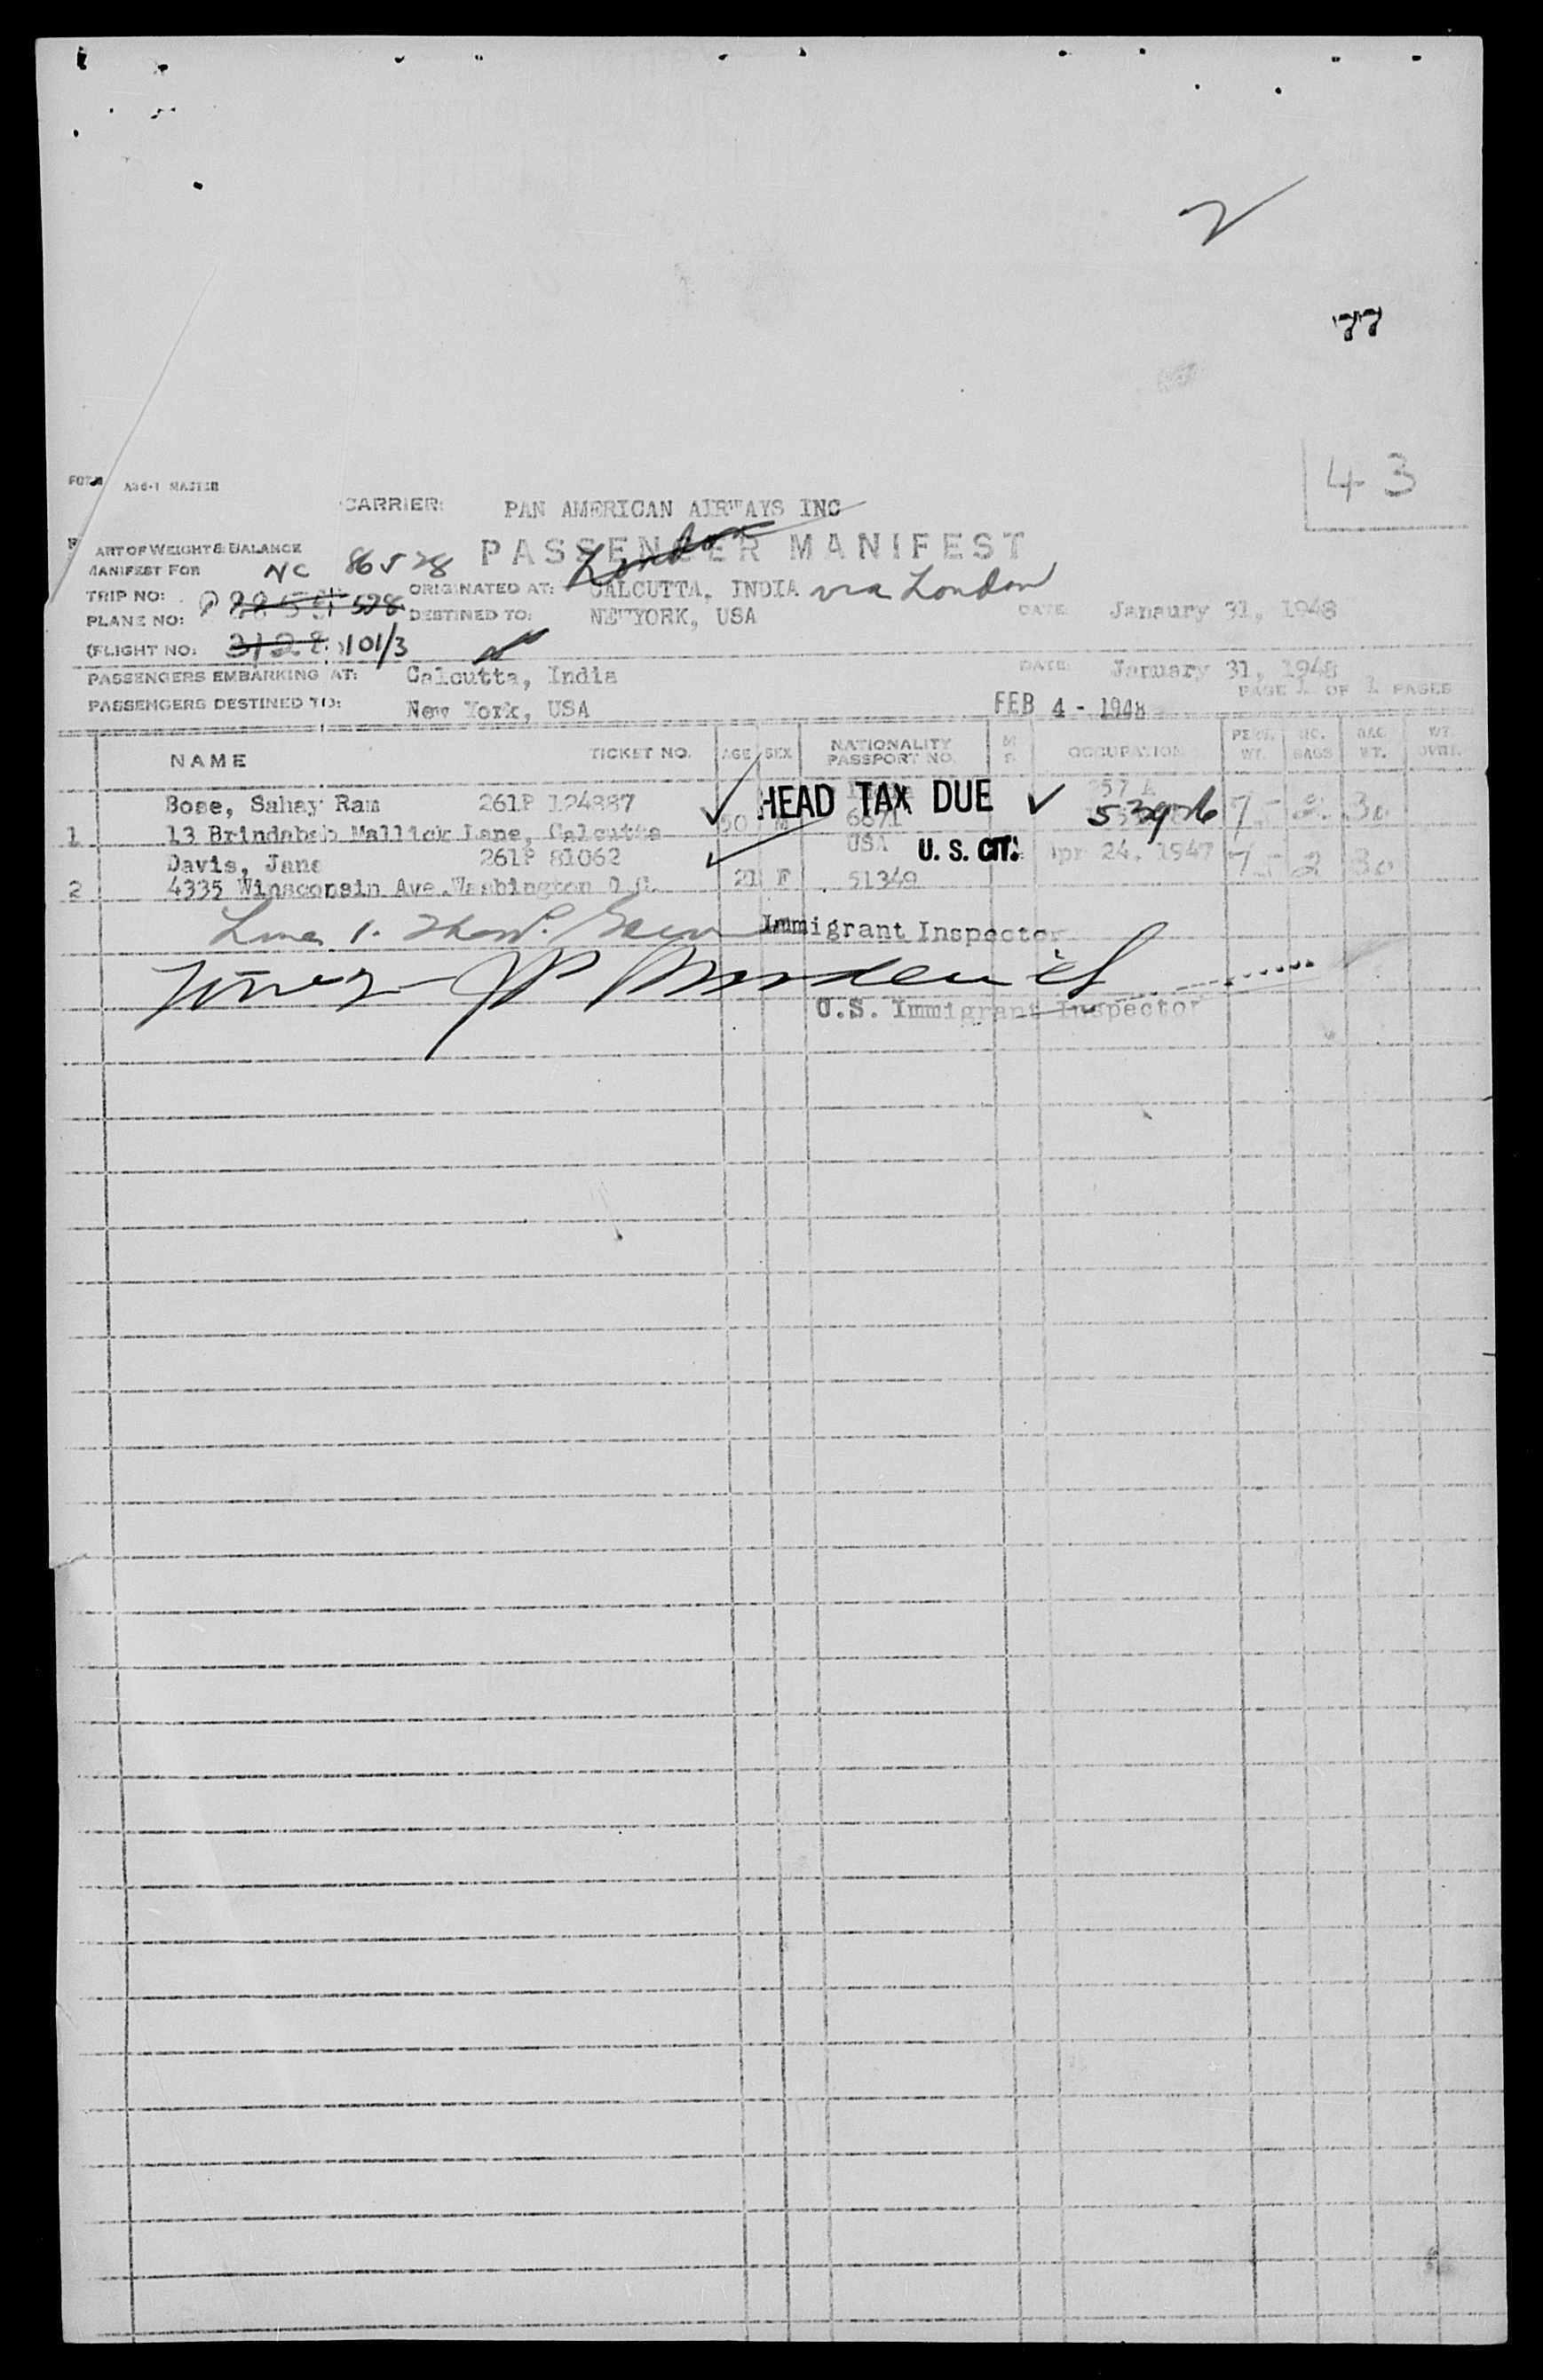 43
CARRIER: PAN AMERICAN AIRWAYS INC
PASSENGER MANIFEST
ART OF WEIGHT & BALANCE
MANIFEST FOR NC 86528
TRIP NO: ORIGINATED AT: London CALCUTTA, INDIA via London
PLANE NO: 528 DESTINED TO: NEWYORK, USA DATE Janaury 31, 1948
FLIGHT NO: 3128 101/3
PASSENGERS EMBARKING AT: Calcutta, India DATE: January 31, 1948
PAGE 1 OF 1 PAGES
PASSENGERS DESTINED TO: New York, USA FEB 4 - 1948
NAME TICKET NO. AGE SEX NATIONALITY PASSPORT NO. M S OCCUPATION PERS. WT. NO. BAGS BAG. WT. WT. OVER.
Bose, Sahay Ram 261P 124887 HEAD TAX DUE 257 A
1 13 Brindabab Mallick Lane, Calcutta 50 M 6671 2 30
Davis, Jane 261P 81062 USA U. S. CIT. Apr 24, 1947 2 30
2 4335 Winsconsin Ave.Washington D.C. 21 F 51349
Immigrant Inspector
U.S. Immigrant Inspector